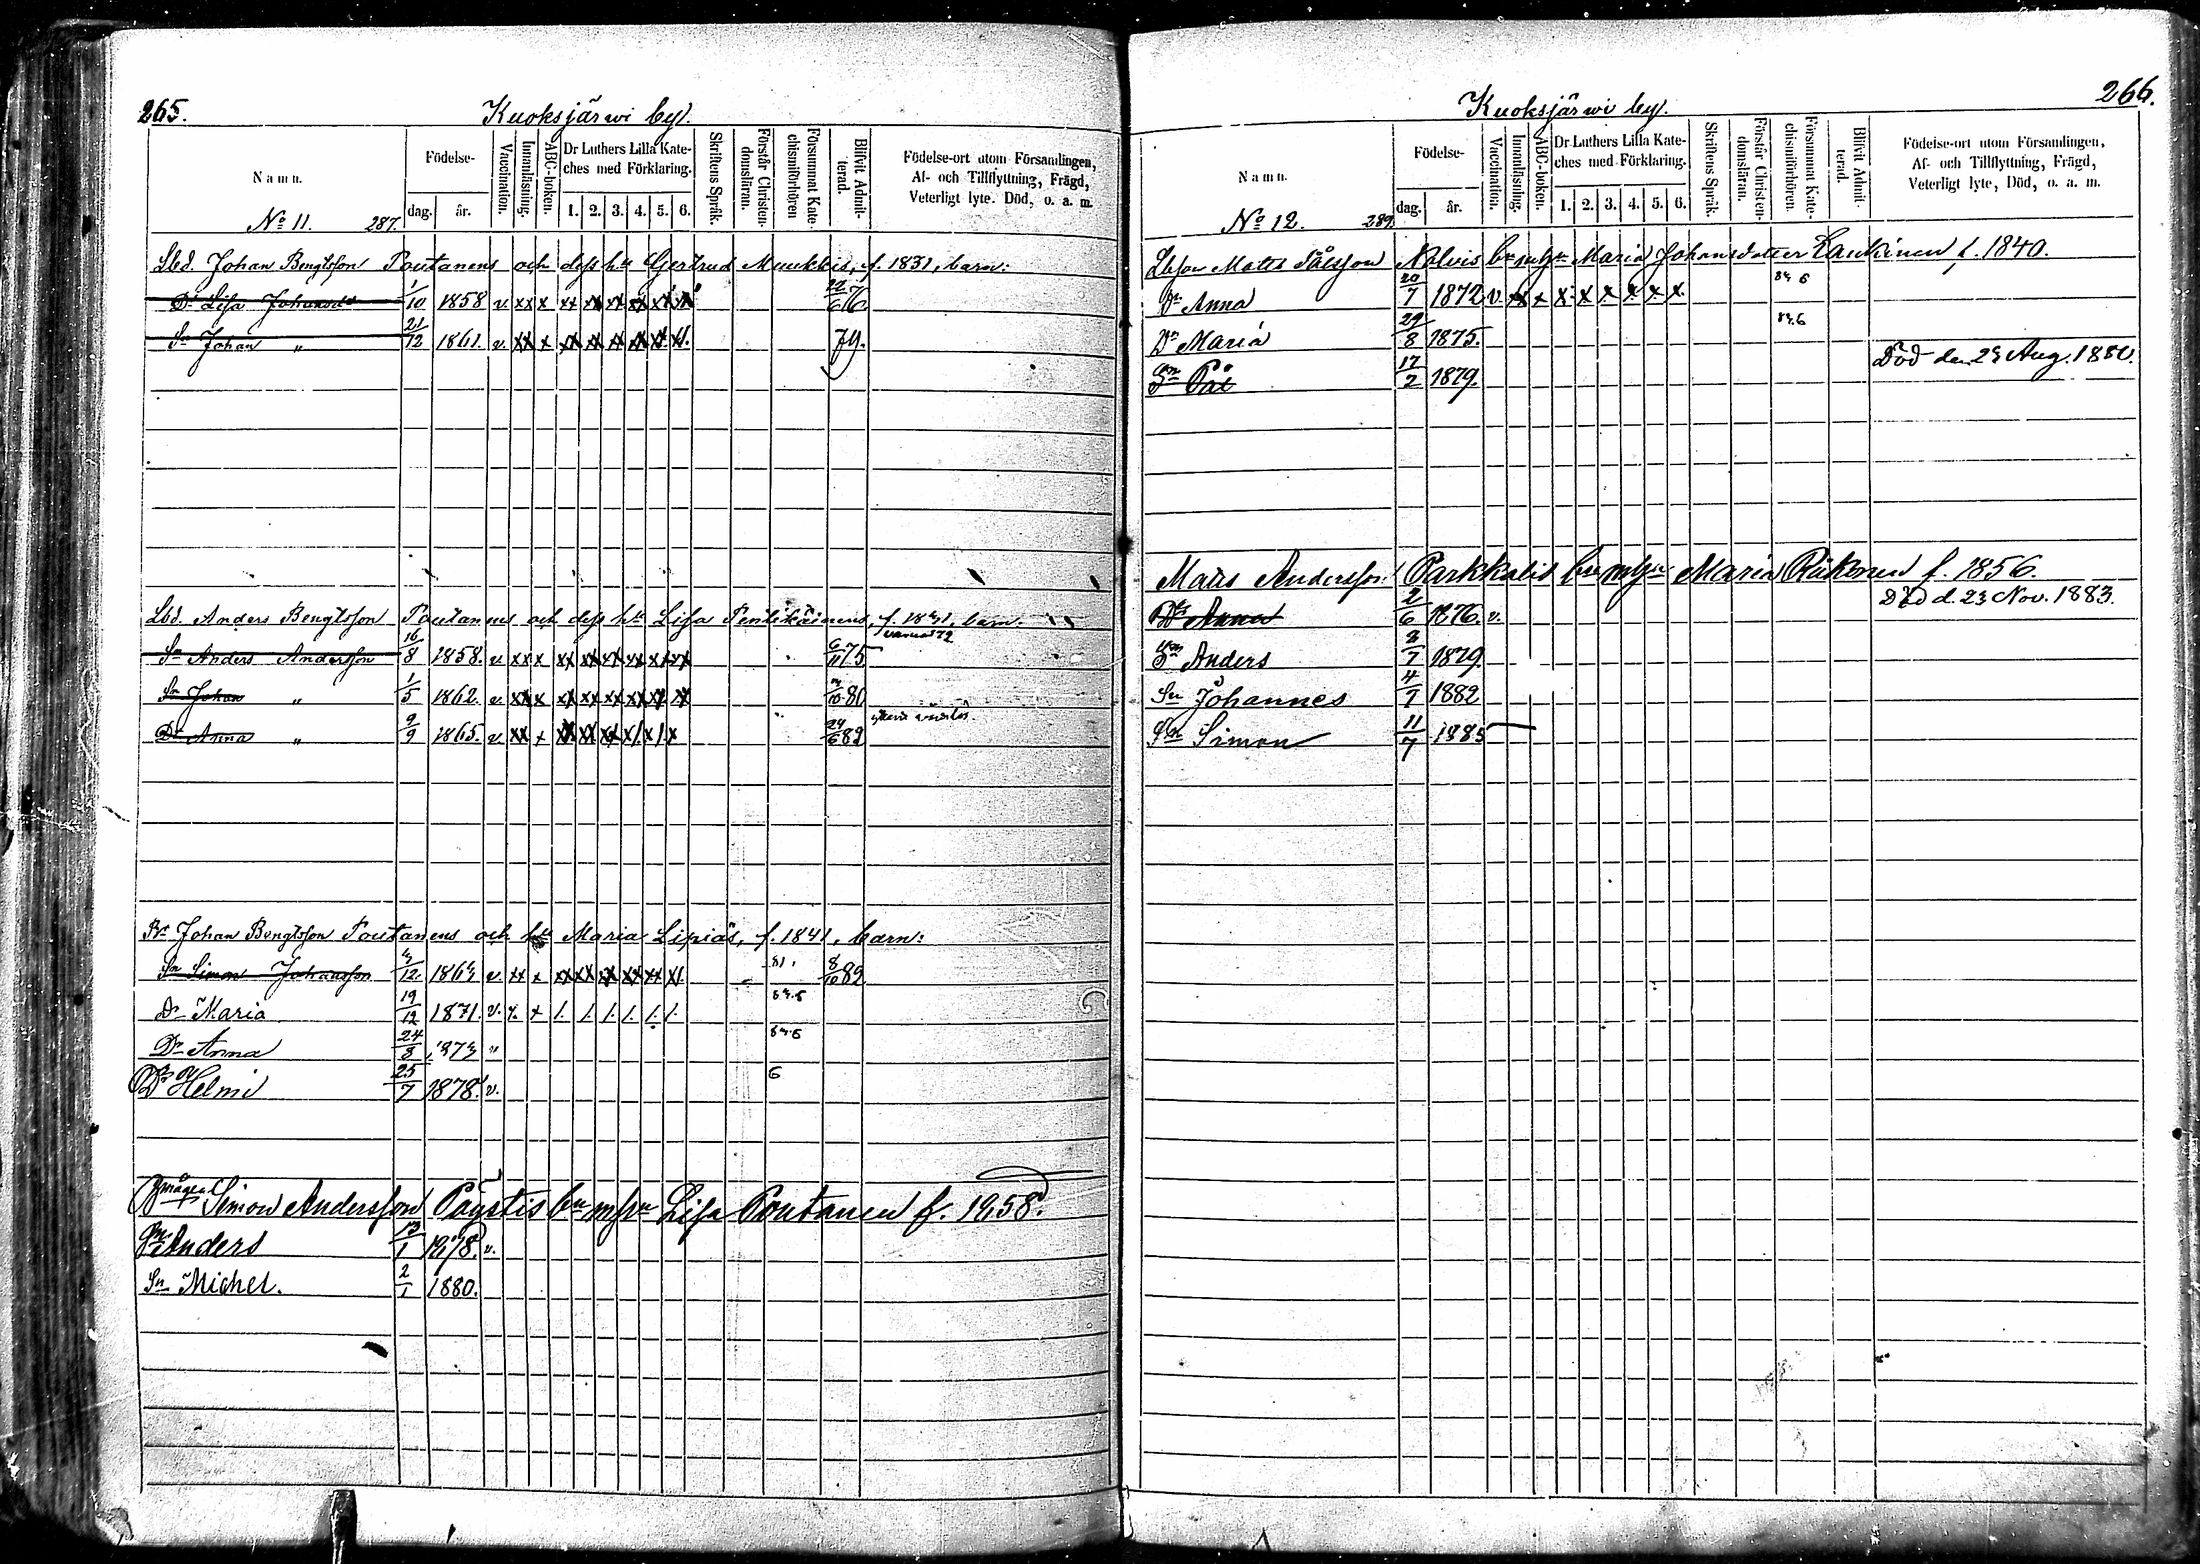 265.
Kuoksjärwi by.
Namn.
Födelse-
dag. år.
Vaccination.
Innanläsning.
ABC-boken.
Dr Luthers Lilla Kate-
ches med Förklaring.
1. 2. 3. 4. 5. 6.
Skriftens Språk.
Förstår Christen-
domsläran.
Försummat Kate-
chismiförhören
Blifvit Admit-
terad.
Födelse-ort utom Församlingen,
Af- och Tillflyttning, Frägd,
Veterligt lyte. Död, o. a. m.
No 11. 287.
Lbd. Johan Bengtsson Poutanens och dess hu Gertrud Muukkis, f. 1831, barn:
Dr Lisa Johansdr 1/10 1858 v. xx x xx xx xx xx
Sn Johan „ 21/12 1861. v. xx x xx xx xx xx 79.
Lbd. Anders Bengtsson Poutanens och dess hu Lisa Pentikäinens, barn.
Sn Anders Andersson 16/8 1858. v. xx x xx xx xx xx xx xx 6/11 75
Sn Johan „ 1/5 1862. v. xx x xx xx xx xx xx xx 80
Dr Anna „ 9/9 1865. v. xx x 24/6 82
Br Johan Bengtsson Poutanens och hu Maria Lipiäs, f. 1841, barn:
Sn Simon Johansson v. xx x xx xx xx xx xx 81 8/10 82
Dr Maria 19/12 1871. v. x. x 1. 1. 1. 1. 1. 1.
Dr Anna 24/8 1873 „
Dr Helmi 25/7 1878. v. 6
Simon Andersson Päystis hu Lisa Poutanen f. 1858.
Sn Anders 1878. v.
Sn Michel. 2/1 1880.
266.
Kuoksjärwi by.
Namn.
Födelse-
dag. år.
Vaccination.
Innanläsning.
ABC-boken.
Dr Luthers Lilla Kate-
ches med Förklaring.
1. 2. 3. 4. 5. 6.
Skriftens Språk.
Förstår Christen-
domsläran.
Försummat Kate-
chismiförhören.
Blifvit Admit-
terad.
Födelse-ort utom Församlingen,
Af- och Tillflyttning, Frägd,
Veterligt lyte, Död, o. a. m.
No 12. 289.
Matts Pålsson Maria Johansdotter Laukinen f. 1840.
Dr Anna 20/7 1872 v. xx x x x x x x x.
Dr Maria 29/8 1875.
Sn Pål 17/2 1879. Död den 23 Aug. 1880.
Matts Andersson Parkkalis Maria Räkönen f. 1856.
Dr Anna 2/6 1876. v. Död d. 23 Nov. 1883.
Sn Anders 1879
Sn Johannes 4/7 1882
Sn Simon 11/7 1885